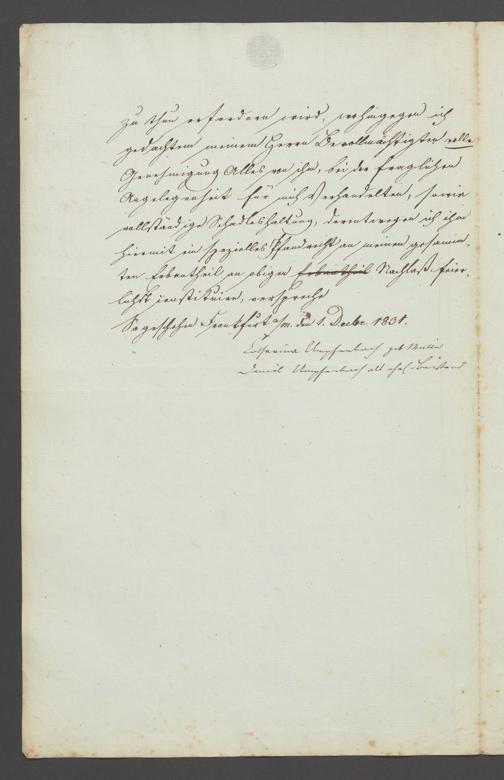 zu thun erfordern wird, wohingegen ich
gedachtem meinem Herrn Bevollmächtigten volle
Genehmigung Alles von ihm, bei der fraglichen
Angelegenheit für mich Verhandelten, sowie
vollständige Schadloshaltung, derentwegen ich ihm
hiermit ein spezielles Pfandrecht an meinem gesamm-
ten Erbantheil an obigem Erbantheil Nachlaß feier-
lichst constituire, verspreche
So geschehen Frankfurt a/m. den 1. Decbr. 1831.
Catharina Umpfenbach geb
Daniel Umpfenbach als ehel. Beistand